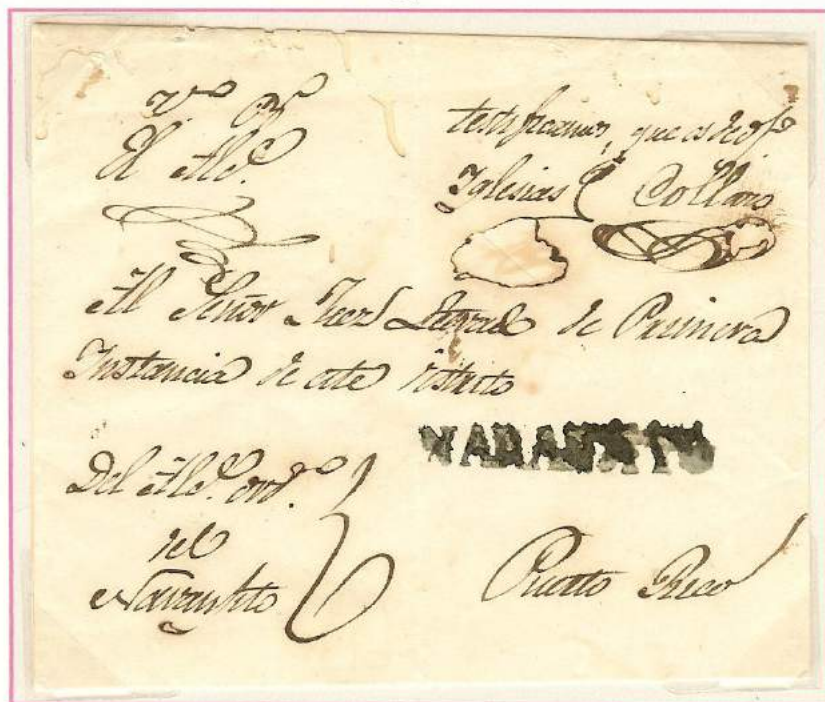 Vº Bº
El Alcᵉ
testificamos, que es de ofº
Iglesias Collazo
Al Señor Juez Letrado de Primera
Instancia de este distrito
NARANJITO
Del Alcᵉ ordº
del
Naranjito
Puerto Rico